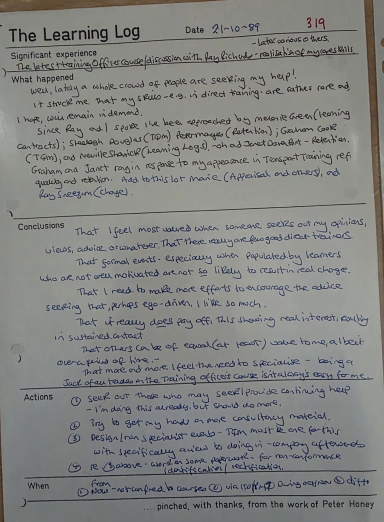 319
The Learning Log Date 21-10-89
- later various others.
Significant experience
The latest training Officer course/discussion with Ray Richards - realisation of my rare skills
What happened
Well, lately a whole crowd of people are seeking my help!
It struck me that my skills - e.g. in direct training - are rather rare and,
I hope, will remain in demand.
Since Ray and I spoke, I've been approached by melanie Green (learning
contracts); Sheelagh Douglas (TQM) Peter mayes (Retention); Graham Cook
(TQM), and Neville Shanick (Learning Logs), - oh and Janet - Retention.
Graham and Janet rang in response to my appearance in Transport Training ref.
quality and retention. Add to this lot marie (Appraisals and others), and
Ray Sneezum (change).
Conclusions
That I feel most valued when someone seeks out my opinions,
views, advice or whatever. That there really are few good direct trainers.
That formal events - especially when populated by learners
who are not well motivated are not so likely to result in real change.
That I need to make more efforts to encourage the advice
seeking that, perhaps ego-driven, I like so much.
That it really does pay off, this showing real interest, resulting
in sustained contact
That others can be of equal (at least) value to me, albeit
over a period of time. -
That more and more I feel the need to specialise - being a
Jack of all trades on the Training officers course isn't always easy for me.
Actions
① Seek out those who may seek/provide continuing help
- I'm doing this already, but should do more.
② Try to get my hands on more consultancy material.
③ Design/run specialist events - TQM must be one for this
with specifically a view to doing in-company afterwards
④ re ③ above - work on some paperwork - for non conformance
identification/rectification.
When
① From Now - not confined to courses ② via ③ ④ ditto
....pinched, with thanks, from the work of Peter Honey